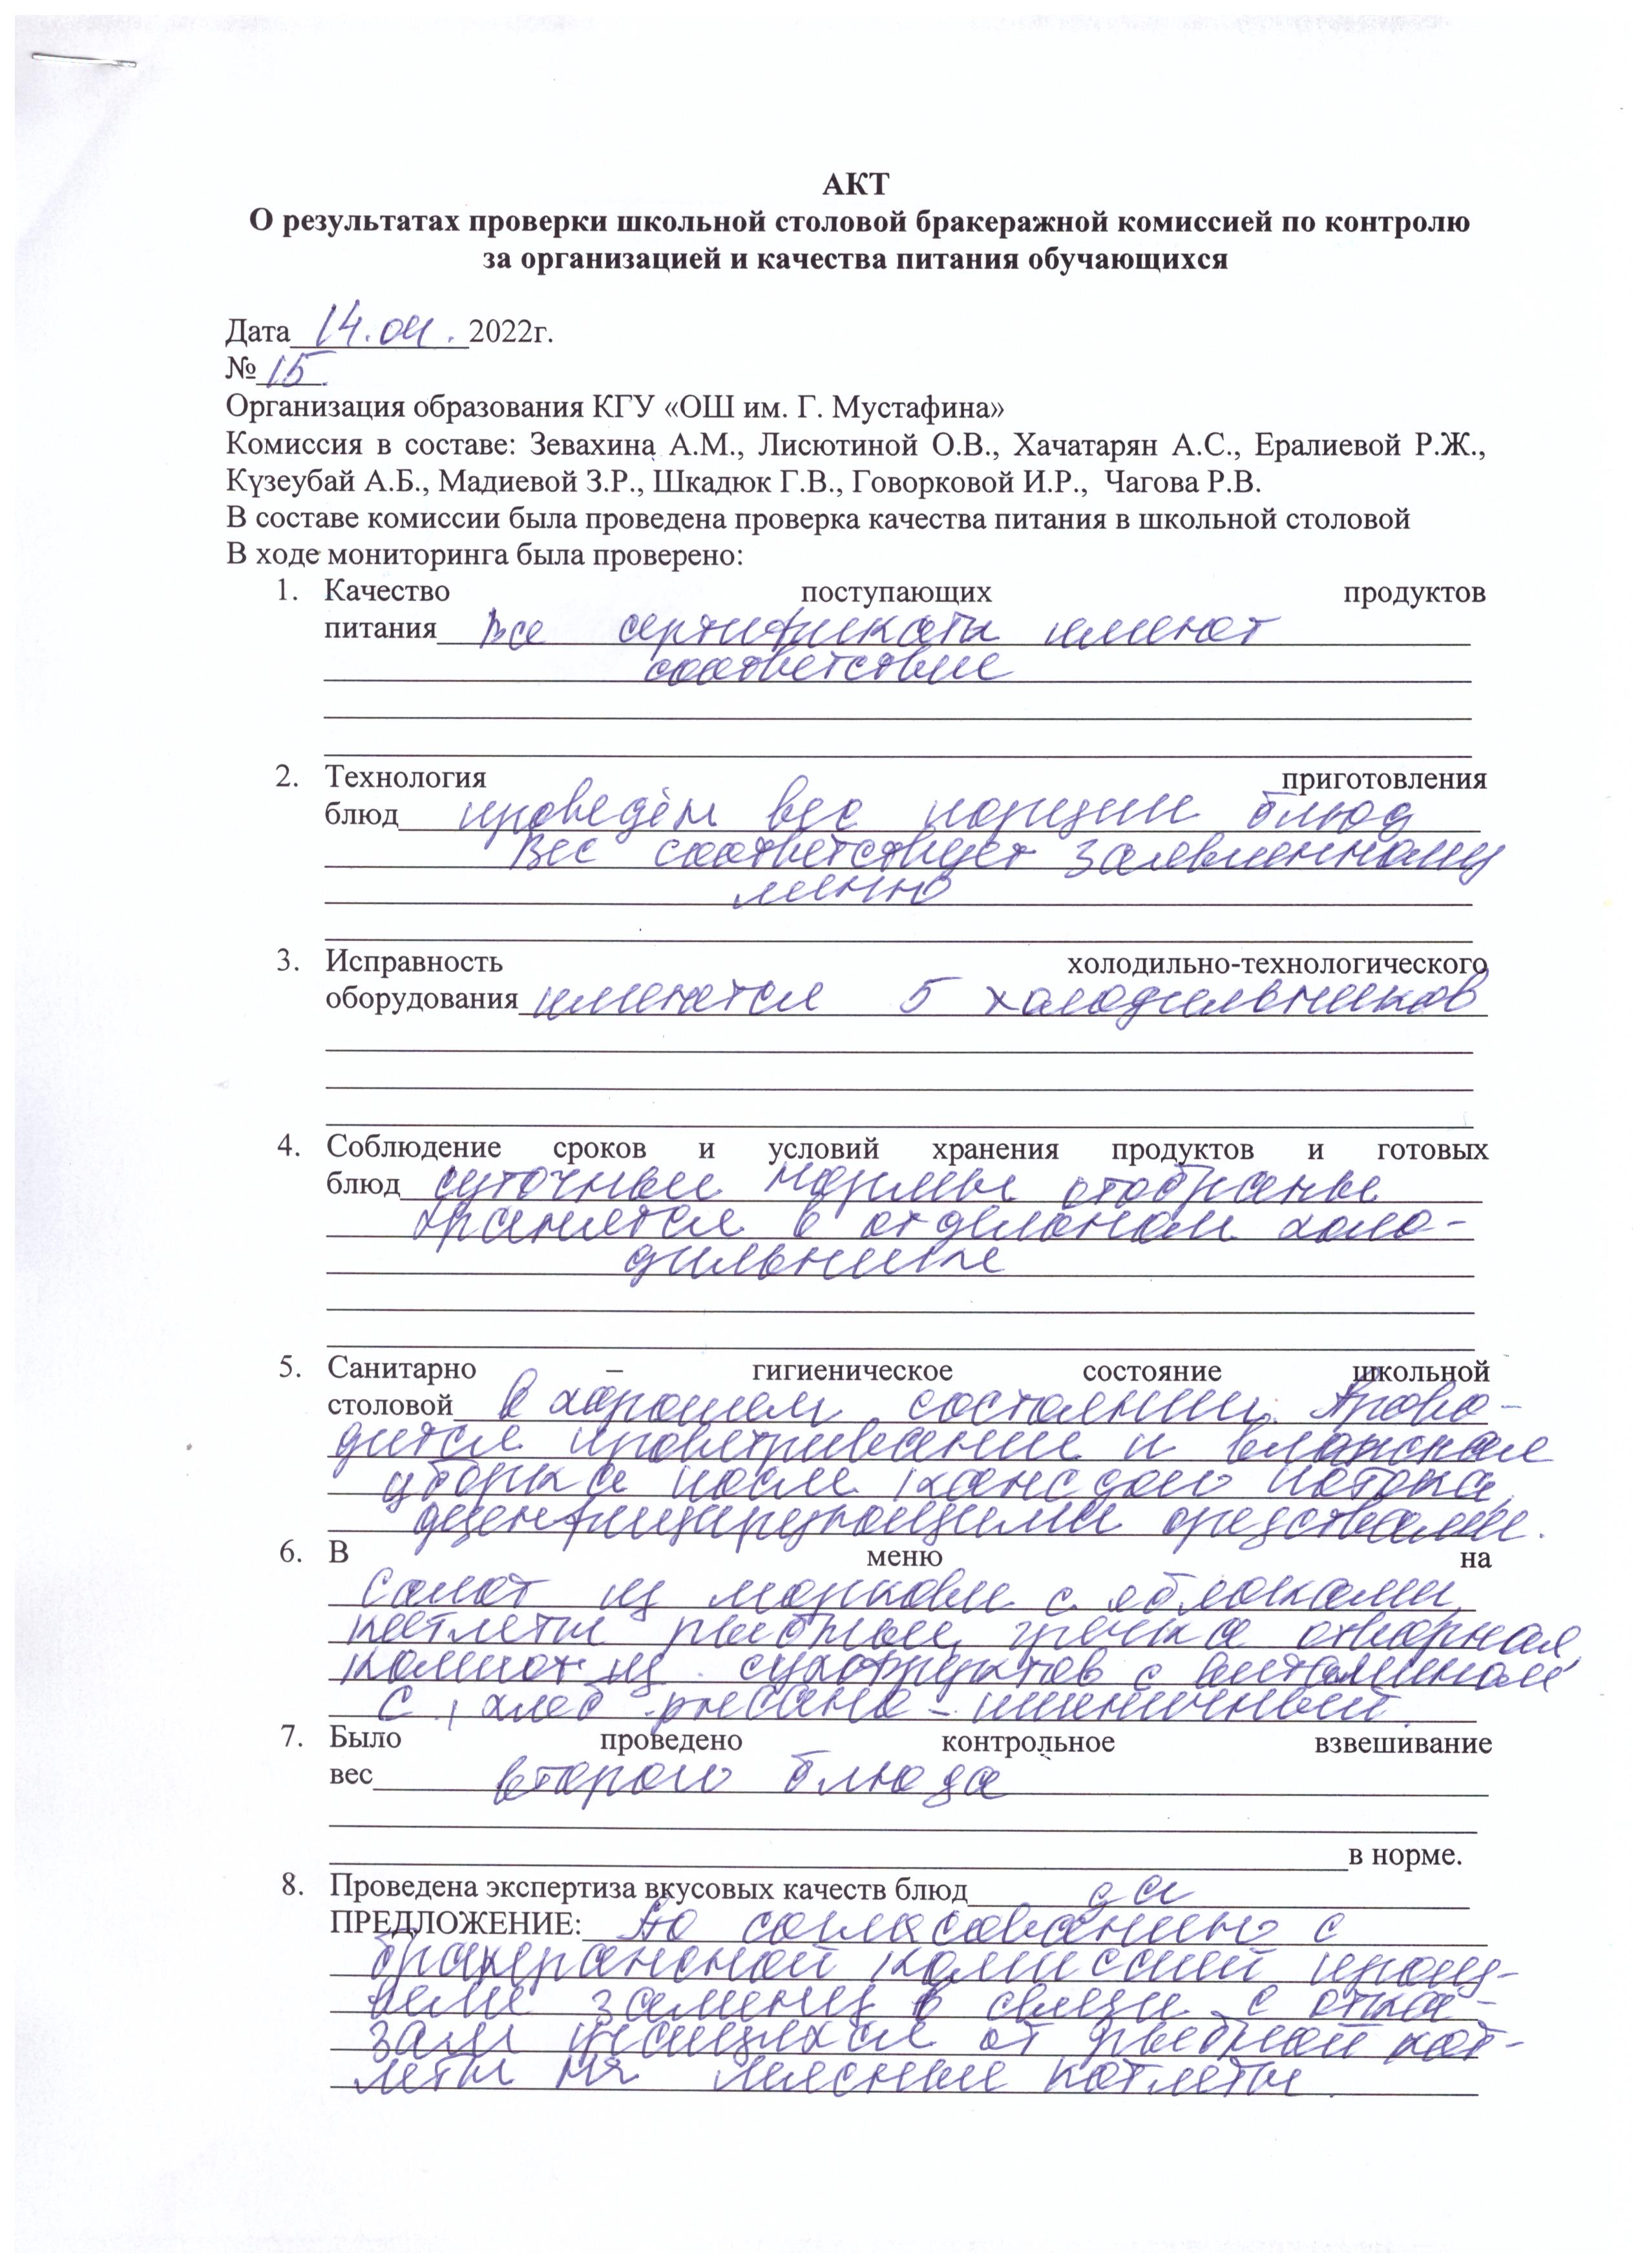 АКТ
О результатах проверки школьной столовой бракеражной комиссией по контролю
за организацией и качества питания обучающихся
Дата 14.04. 2022г.
№ 15.
Организация образования КГУ «ОШ им. Г. Мустафина»
Комиссия в составе: Зевахина А.М., Лисютиной О.В., Хачатарян А.С., Ералиевой Р.Ж.,
Күзеубай А.Б., Мадиевой З.Р., Шкадюк Г.В., Говорковой И.Р., Чагова Р.В.
В составе комиссии была проведена проверка качества питания в школьной столовой
В ходе мониторинга была проверено:
1. Качество поступающих продуктов
питания Все сертификаты имеют
соответствие
2. Технология приготовления
блюд проведён вес порции блюд
Вес соответствует заявленному
меню
3. Исправность холодильно-технологического
оборудования имеются 5 холодильников
4. Соблюдение сроков и условий хранения продуктов и готовых
блюд суточные нормы отобраны
хранятся в отдельном холо-
дильнике
5. Санитарно – гигиеническое состояние школьной
столовой в хорошем состоянии. Прово-
дится проветривание и влажная
уборка после каждого потока,
средствами.
6. В меню на
салат из моркови с яблоками,
котлеты рыбные, гречка отварная,
компот из сухофруктов с витамином
С, хлеб ржано-пшеничный.
7. Было проведено контрольное взвешивание
вес второго блюда
в норме.
8. Проведена экспертиза вкусовых качеств блюд да
ПРЕДЛОЖЕНИЕ: По согласованию с
бракеражной комиссией
замену в связи с отка-
зам учащихся от рыбной кот-
леты на мясные котлеты.